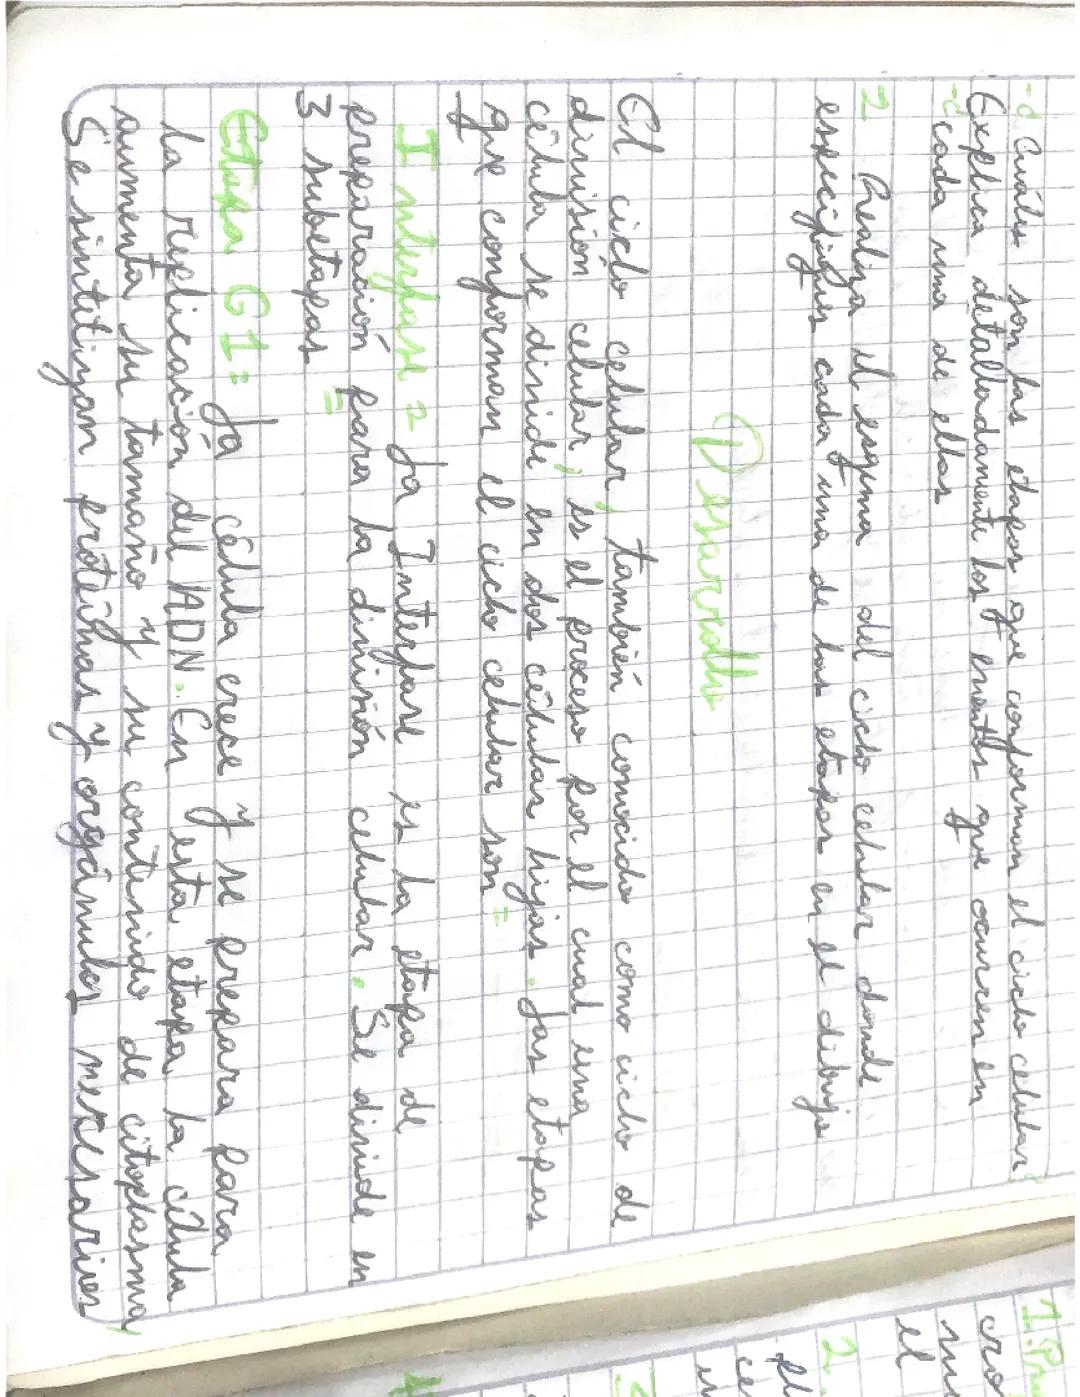 -¿ Cuáles son las etapas que conforman el ciclo celular?
Explica detalladamente los eventos que ocurren en
-¿ cada una de ellas
2 Realiza el esqema del ciclo celular donde
especifiques cada una de las etapas en el dibujo
Desarrollo
El ciclo celular, también conocido como ciclo de
división celular, es el proceso por el cual una
célula se divide en dos células hijas. Las etapas
que conforman el ciclo celular son:
Interfase: La Interfase es la etapa de
preparación para la división celular. Se divide en
3 subetapas:
Etapa G1: La célula crece y se prepara para
la replicación del ADN. En esta etapa la célula
aumenta su tamaño y su contenido de citoplasma,
Se sintetizan proteínas y orgánulos necesarios
1.
cro
su
el
2.
el
ce
3